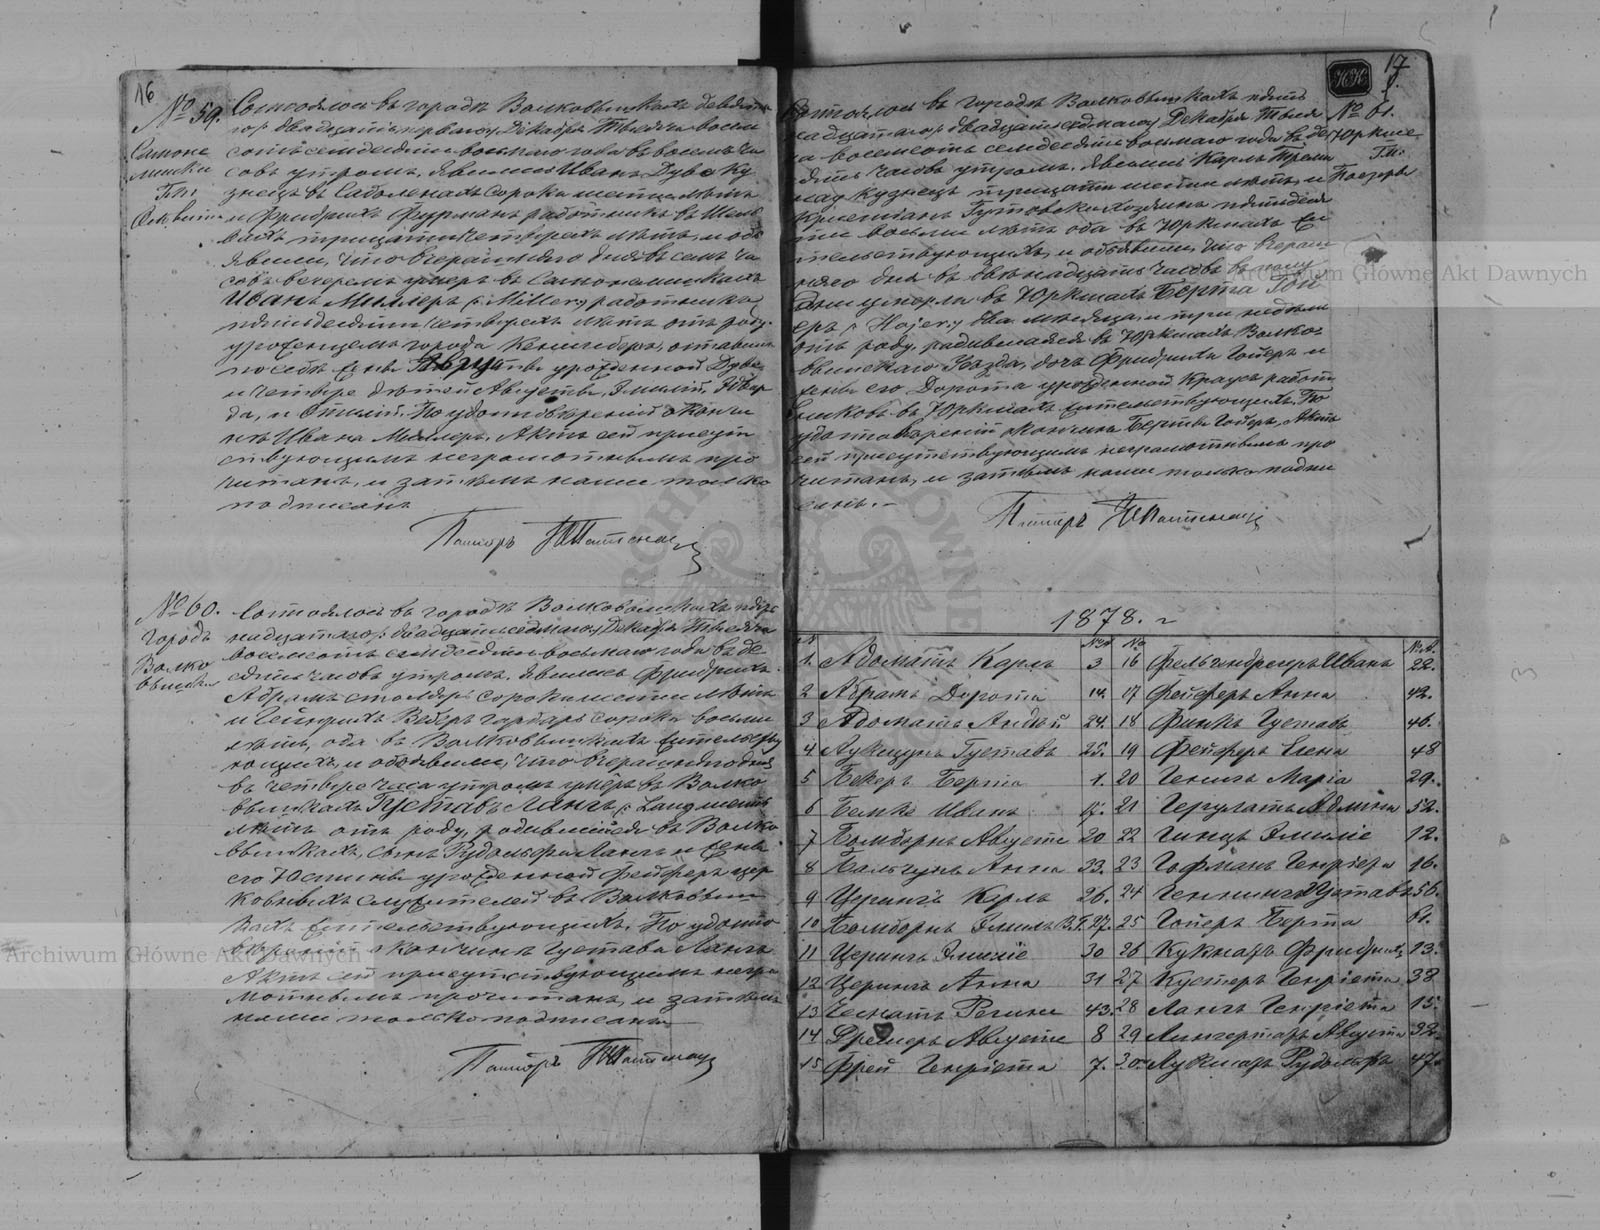 16
№ 59.
Самоне
лишки
Состоялось въ городѣ Волковышкахъ девята
го /: двадцать перваго :/ Декабря Тысяча восем
сотъ семдесятъ восьмаго года въ восемь ча
совъ утромъ. Явились Иванъ Дува Ку
знецъ въ сорока шести лѣтъ
и Фридрихъ Фурманъ работникъ въ
тридцати четырехъ лѣтъ, и объ
явили, что вчерашняго дня въ семь ча
совъ вечеромъ умеръ въ Самонелишкахъ
Иванъ Миллеръ /: Miller :/ работникъ
пятьдесятъ четырехъ лѣтъ отъ роду
уроженецъ города Кенигсберъ, оставивъ
по себѣ жену урожденной Дува
и четыре дѣтей Августъ, Эмилій, Эдвар
да, и Отилій. По удостовѣреніи о кончи
нѣ Ивана Миллеръ, Актъ сей присут
ствующимъ неграмотнымъ про
читанъ, и затѣмъ нами только
подписанъ
Пасторъ
№ 60.
городъ
Волко
вышки
Состоялось въ городѣ Волковышкахъ пят
надцатаго /: двадцать седмаго :/ Декабря Тысяча
восемсотъ семдесятъ восьмаго года въ де
сять часовъ утромъ. Явились Фридрихъ
Абрамъ столяръ сорока шести лѣтъ
и Гейнрихъ Веберъ гарбаръ сорока восьми
лѣтъ, оба въ Волковышкахъ жительству
ющихъ, и объявили, что вчерашняго дня
въ четыре часа утромъ умеръ въ Волко
вышкахъ Густавъ Лангъ /: Lang шесть
лѣтъ отъ роду, родившійся въ Волко
вышкахъ, сынъ Рудольфа Лангъ и жены
его Юстины урожденной Фейферъ цер
ковныхъ служителей въ Волковыш
кахъ жительствующихъ. По удосто
вѣреніи о кончинѣ Густава Лангъ
Актъ сей присутствующимъ негра
мотнымъ прочитанъ, и затѣмъ
нами только подписанъ
Пасторъ
НК
17
№ 61.
Юркше
Состоялось въ городѣ Волковышкахъ пят
надцатаго /: двадцать седмаго :/ Декабря Тыся
ча восемсотъ семдесятъ восьмаго года въ де
сять часовъ утромъ. Явились Карлъ
Кузнецъ тридцати шести лѣтъ, и
Христіанъ Гутовски хозяинъ пятьдеся
ти восьми лѣтъ оба въ Юркшахъ жи
тельствующихъ, и объявили, что вчераш
няго дня въ двѣнадцать часовъ въ
умерла въ Юркшахъ Берта Гой
еръ /: Hojer :/ два мѣсяца и три недѣли
отъ роду, родившаяся въ Юркшахъ Волко
вышскаго Уѣзда, дочь Фридриха Гойеръ и
жены его Дорота урожденной Краусъ работ
никовъ въ Юркшахъ жительствующихъ. По
удостовѣреніи о кончинѣ Берты Гойеръ, Актъ
сей присутствующимъ неграмотнымъ про
читанъ, и затѣмъ нами только подпи
санъ.
Пасторъ
1878. г
1. Адоматъ Карлъ 3 16 Иванъ 22.
2 Абрамъ Дорота 14. 17 Фейферъ Анна 42.
3 Адоматъ 24. 18 Финкъ Густавъ 46.
4 Густавъ 25. 19 Фейферъ Елена 48
5 Бекеръ Берта 1. 20 Генигъ Марія 29.
6 Бемке Иванъ 21 52.
7 Бомборнъ Августе 20 22 Гинцъ Эмиліе 12.
8 Анна 33. 23 Гофманъ Генріета 16.
9 Церингъ Карлъ 26. 24 Геннингъ Густавъ 56.
10 Бомборнъ Эмиль 27. 25 Гойеръ Берта 61.
11 Церингъ Эмиліе 30 26 Фридрихъ 13.
12 Церингъ Анна 31 27 Кустеръ Генріета 38
13 Регине 43. 28 Лангъ Генріета 15.
14 Августе 8 29 Августа 32.
15 Фрей Генріета 7. 30 Рудольфъ 47.
Archiwum Główne Akt Dawnych
Archiwum Główne Akt Dawnych